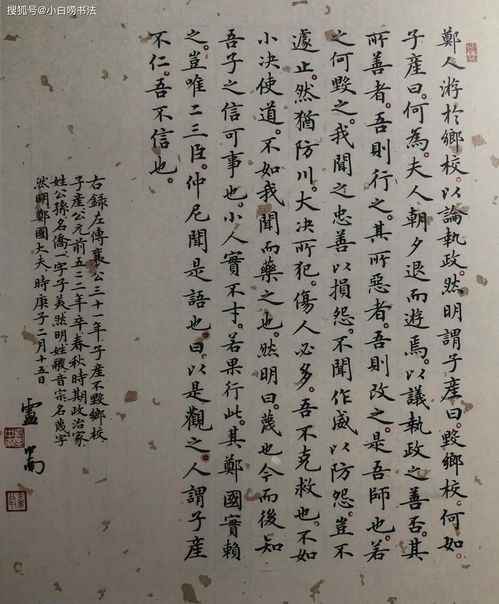 搜狐号@小白唠书法
鄭人游於鄉校。以論執政。然明謂子產曰。毀鄉校。何如。
子產曰。何為。夫人朝夕退而遊焉。以議執政之善否。其
所善者。吾則行之。其所惡者。吾則改之。是吾師也。若
之何毀之。我聞之忠善以損怨。不聞作威以防怨。豈不
遽止。然猶防川。大决所犯。傷人必多。吾不克救也。不如
小决使道。不如我聞而藥之也。然明曰。蔑也今而後知
吾子之信可事也。小人實不才。若果行此。其鄭國實賴
之。豈唯二三臣。仲尼聞是語也。曰。以是觀之。人謂子產
不仁。吾不信也。
右錄左傳襄公三十一年子產不毀鄉校
子產公元前五二二年卒春秋時期政治家
姓公孫名僑一字子美然明姓鬷音宗名蔑字
然明鄭國大夫。時庚子二月十五日